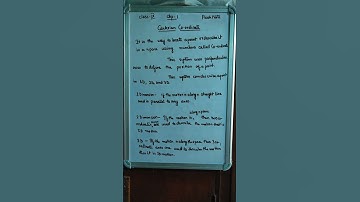 Class-11 Chp:1 Flash Note
Cartesian Co-ordinate
It is the way to locate a point or
in a space using numbers called Co-ordi
This system uses perpendicular
axis to define the position of a point
in 1D, 2D and 3D.
This system consists
1 Dimension - If the motion is along a straight line
and is parallel to any axis.
along a plane
2 Dimension - If the motion is, then two co-
ordinate axis are used to describe the motion that is
2D motion.
3D - If the motion is along the space then 3 co-
ordinate axes are used to describe the motion
that is 3D motion.